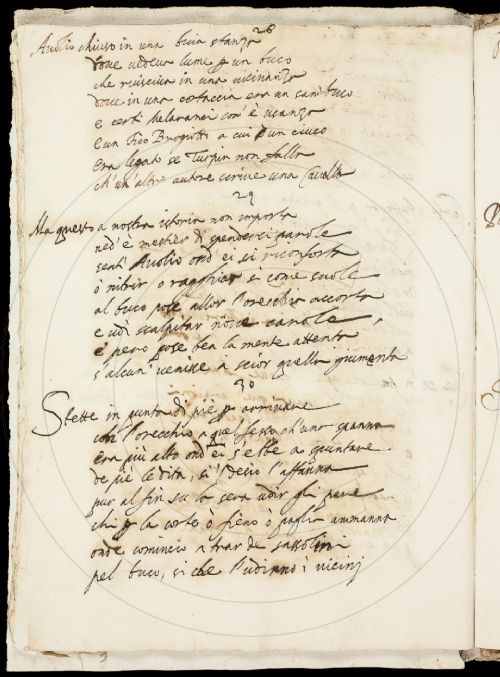 28
Auolio chiuso in una buia stanza
doue uedeua lume p un buco
che riusciua in una uicinanza
doue in una cortaccia era un sambuco
e certi Melarana com' è usanza
e un fico Brogiotto a cui un ciuco
era legato se Turpin non falla
ch'un' altro autore scriue una Caualla
29
Ma questo a nostra istoria non importa
ned' è mestier di spenderci parole
sentì Auolio ond' ei si riconforta
ò nitrir o ragghiar si come suole
al buco pose allor l'orecchia accorta
e udì scalpitar
e però pose ben la mente attenta
s'alcun' uenisse à scior quella giumenta
30
Stette in punta di piè p arriuare
con l'orecchio a quel fesso ch'una spanna
era più alto ond' ei s'ebbe a
de piè le dita, sì l'affanna
pur al fin su la sera udir gli pare
chi p la corte ò fieno ò paglia ammanna
onde cominciò a trar de sassolini
pel buco, si che l'udirno i uicini